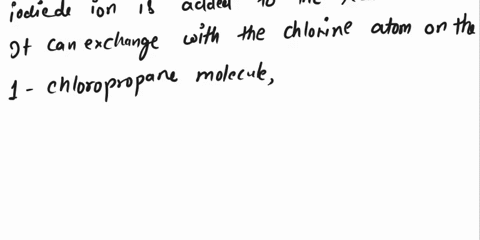 iodiede ion is added to the
It can exchange with the chlorine atom on the
1 - chloropropane molecule,